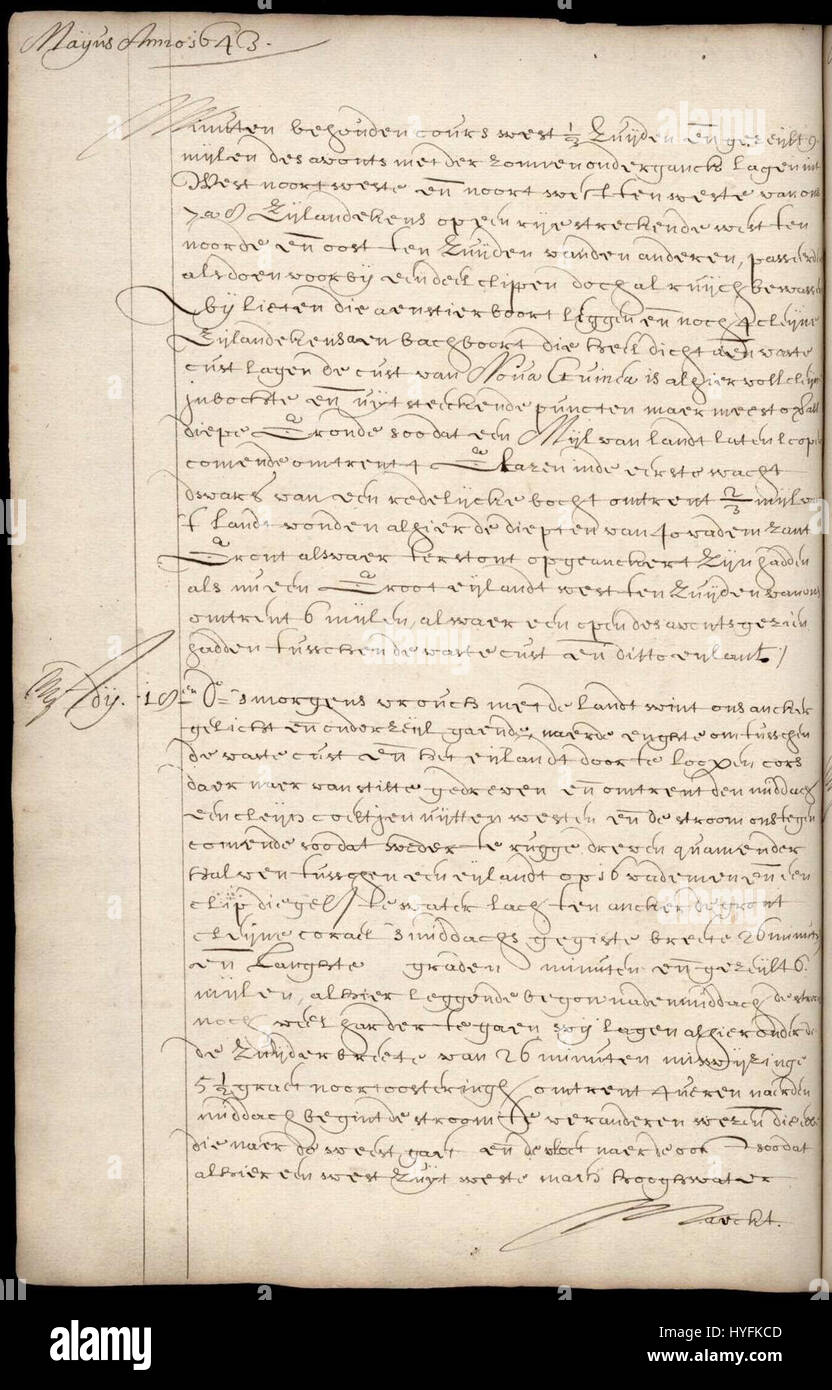 Mayus Anno 1643.
Minuten behouden cours west ½ Zuijden en̄ gezeijlt 9
mijlen des avonts met der zonnen onderganck lagen int
West noort weste en̄ noort west ten weste van ons
7 a 8 Eijlandekens op een rije streckende west ten
noorde en̄ oost ten Zuijden vanden anderen, passeerde
alsdoen voorbij een deel clipen doch al ruijch bewassen
bij lieten die aen stierboort leggen en̄ noch 4 cleijne
Eijlandekens aen bachboort die heel dicht aende vaste
cust lagen de cust van Nova Guinea is alhier vol cleijne
inbochte en̄ uijtsteeckende puncten maer meest overal
diepe Gronde soo dat een Mijl van landt laten loopen
comende omtrent 4 Glazen inde eerste wacht
dwars van een redelijcke bocht omtrent ⅔ mijl van
't landt vonden alhier de diepten van 40 vadem zant
Gront alwaer terstont op geanckert Zijn hadden
als nu een Groot eijlandt west ten Zuijden van ons
omtrent 6 mijlen, alwaer een open des avonts gezien
hadden tusschen de vaste cust en̄ ditto eijlant /
dij. 18 en do 's morgens vrouch met de landt wint ons ancker
gelicht en̄ onder zeijl gaende naer de enghte om tusschen
de vaste cust en̄ het eijlandt door te loopen cors
daer naer van stilte gedreven en̄ omtrent den middach
een cleijn coeltjen uijtten westen en̄ de stroom ons tegen
comende soo dat weder te rugge dreven quamen der
halven tusschen een eijlandt op 16 vademen en̄ een
clip die gel: te water lach ten ancker de gront
cleijne corael 's middachs gegiste breete 26 minuten
en̄ Langhte graden minuten en̄ gezeijlt 6
mijlen, alhier leggende begon nademiddach de stroom
noch veel harder te gaen wij lagen alhier onder de
de Zuijderbreete van 26 minuten miswijzinge
5½ graet noortoosteringh omtrent 4 uren naer den
middach begint de stroom te veranderen wezende die ebbe
die naer de west gaet en de vloet naer de oost soo dat
alhier een west Zuijt weste maen hoogh water
Maeckt.
alamy
HYFKCD
www.alamy.com